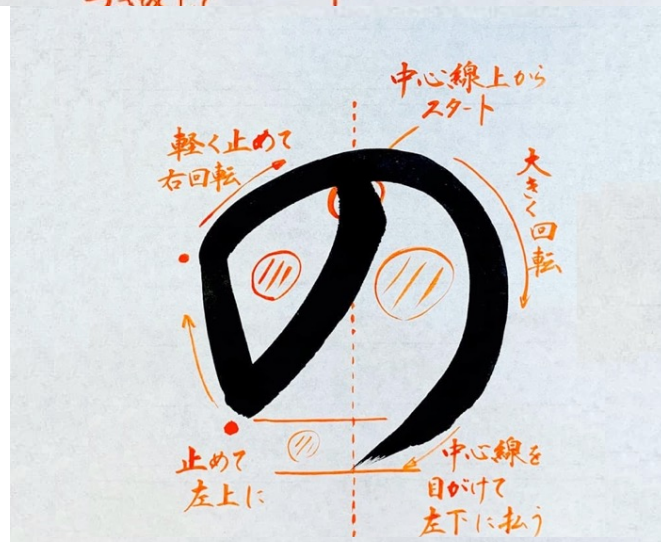 中心線上から
スタート
軽く止めて
右回転
大きく回転
の
止めて
左上に
中心線を
目がけて
左下に払う